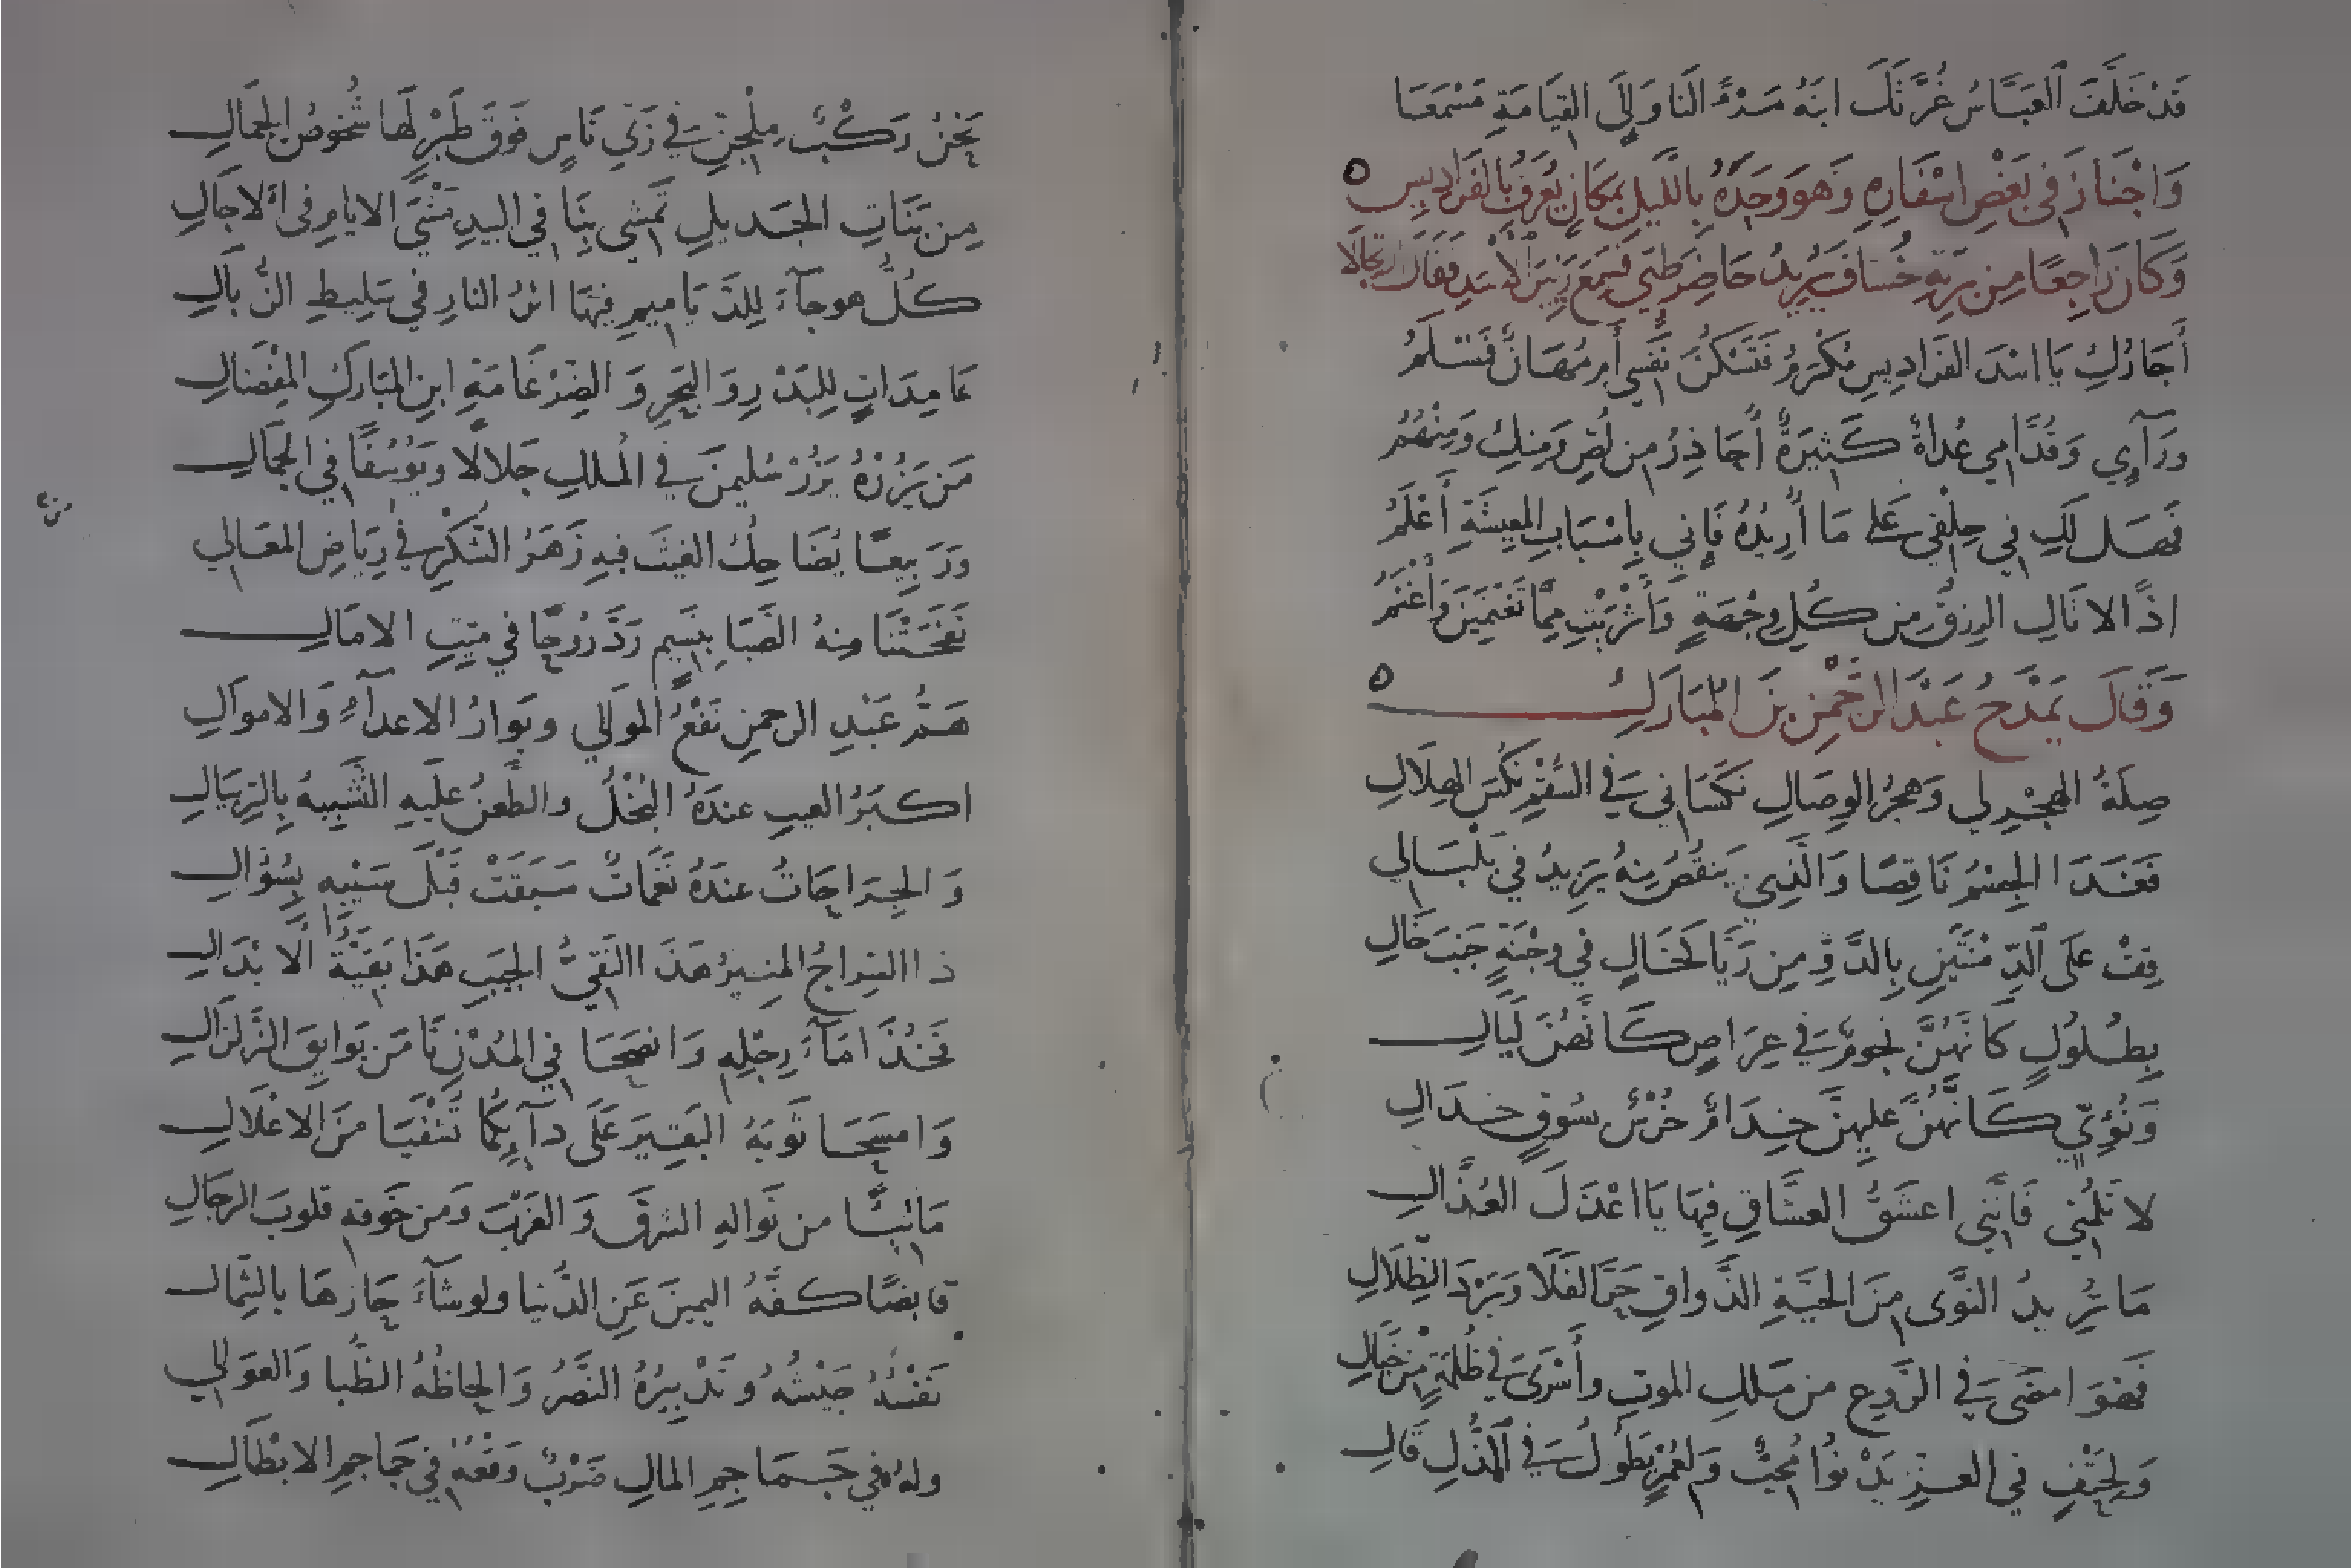 قَدْ خَلَّفَ العَبَّاسُ غُرَّتَكَ ابنَهُ مَرْأًى لنا وَإِلَى القِيَامَةِ مَسْمَعَا
وَاجْتَازَ فِي بَعْضِ اسْفَارِهِ وَهوَ وَحدَهُ بِاللَّيلِ بمَكَانٍ يُعرَفُ بِالفَرَادِيسِ
وَكَانَ رَاجِعًا مِن بَرِّيةِ خُسَافَ يُرِيدُ حَاضِرَ طَيٍّ فَسَمِعَ زَئِيرَ الأَسَدِ فَقَالَ ارتجالا
أَجَارُكِ يَا اسْدَ الفَرَادِيسِ مُكْرَمُ فَتَسْكُنَ نَفْسِي أَم مُهَانٌ فَمُسْلَمُ
وَرَآءِي وَقُدَّامِي عُدَاةٌ كَثِيرَةٌ أُحَاذِرُ مِن لِصٍّ وَمِنكِ وَمِنْهُمُ
فَهَل لَكِ فِي حِلْفِي عَلى مَا أُرِيدُهُ فَإِنِّي بِاسْبَابِ المَعِيشَةِ أَعْلَمُ
اذًا لاتَاكِ الرِزقُ مِن كُلِّ وِجْهَةٍ وَأَثْرَيْتِ مِمَّا تَغنَمِينَ وَأَغْنَمُ
وَقَالَ يَمْدَحُ عَبْدَ الرَّحْمٰنِ بنَ المُبَارَكِ
صِلَةُ الهَجْرِ لِي وَهَجْرُ الوِصَالِ نَكَسَانِي فِي السُّقْمِ نُكْسَ الهِلَالِ
فَغَدَا الجِسْمُ نَاقِصًا وَالَّذِي يَنقُصُ مِنهُ يَزِيدُ فِي بَلْبَالِي
قِفْ عَلَى الدِّمْنَتَيْنِ بِالدَّوِّ مِن رَيَّا كَخَالٍ فِي وَجْنَةٍ جَنبَ خَالِ
بِطُلُولٍ كَانَّهُنَّ نُجومٌ فِي عِرَاصٍ كَانَّهُنَّ لَيَالِ
وَنُؤِيٍّ كَانَّهُنَّ عليهِنَّ خِدَامٌ خُرْسٌ بسُوقٍ خِدَالِ
لا تَلُمنِي فَإِنَّنِي اعشَقُ العشَّاقِ فِيهَا يَا اعْذَلَ العُذَّالِ
مَا تُرِيدُ النَّوَى مِنَ الحَيَّةِ الذَّوَّاقِ حَرَّ الفَلَا وَبَرْدَ الظِّلَالِ
فَهوَ امضَى فِي الرَّوعِ مِن مَلَكِ الموتِ وأَسْرَى فِي ظُلمَةٍ مِن خَيَالِ
وَلِحَتْفٍ فِي العِزِّ يَدْنُو مُحِبٌّ وَلِعُمْرٍ يَطُولُ فِي الذُّلِّ قَالِ
نَحْنُ رَكْبٌ مِلْجِنِّ فِي زَيِّ نَاسٍ فَوقَ طَيْرٍ لَهَا شُخوصُ الجِمَالِ
مِن بَنَاتِ الجَدِيلِ تَمشِي بِنَا فِي البِيدِ مَشْيَ الايامِ فِي الآجَالِ
كُلُّ هوجآءَ لِلدَّيَامِيمِ فِيهَا اثرُ النارِ فِي سَلِيطِ الذُّبَالِ
عَامِدَاتٍ لِلبَدْرِ وَالبَحْرِ وَالضِرْغَامَةِ ابنِ المُبَارَكِ المِفْضَالِ
مَن يَزُرْهُ يَزُرْ سُليمنَ فِي المُلكِ جَلَالًا وَيُوسُفًا فِي الجَمَالِ
وَرَبِيعًا يُضَاحِكُ الغيثَ فِيهِ زَهَرُ الشُّكْرِ فِي رِيَاضِ المَعَالِي
نَفَحَتْنَا مِنهُ الصَّبَا بِنَسِيمٍ رَدَّ رُوحًا فِي مَيِّتِ الامَالِ
هَمُّ عَبْدِ الرحمنِ نَفْعُ المَوَالِي وبَوَارُ الاعدآءِ وَالاموَالِ
اكبَرُ العيبِ عندَهُ البُخْلُ والطَّعنُ عَلَيهِ التَّشبِيهُ بِالرِّيبَالِ
وَالجِرَاحَاتُ عندَهُ نَغَمَاتٌ سَبَقَتْ قَبْلَ سَيْبِهِ بِسُؤَالِ
ذا السِّرَاجُ المنِيرُ هَذَا النَّقِيُّ الجَيبِ هَذَا بَقِيَّةُ الابْدَالِ
فَخُذَا مَآءَ رِجْلِهِ وَانضَحَا فِي المُدْنِ تَامَن بَوَايِقَ الزَّلزَالِ
وَامسَحَا ثَوبَهُ البَقِيرَ عَلَى دآءِكُمَا تُشْفَيَا مِنَ الاعْلَالِ
مَالِئًا مِن نَوَالِهِ الشَرقَ وَالغَرْبَ وَمِن خَوفِهِ قلوبَ الرِّجَالِ
قابضًا كفَّهُ اليمينَ عَنِ الدُّنيا ولو شآءَ حَازَهَا بالشِّمَالِ
نَفْسُهُ جَيْشُهُ وتَدْبِيرُهُ النَّصْرُ وَالحَاظُهُ الظُّبا وَالعَوَالِي
ولهُ فِي جَمَاجِمِ المَالِ ضَرْبٌ وَقْعُهُ فِي جَمَاجِمِ الابْطَالِ